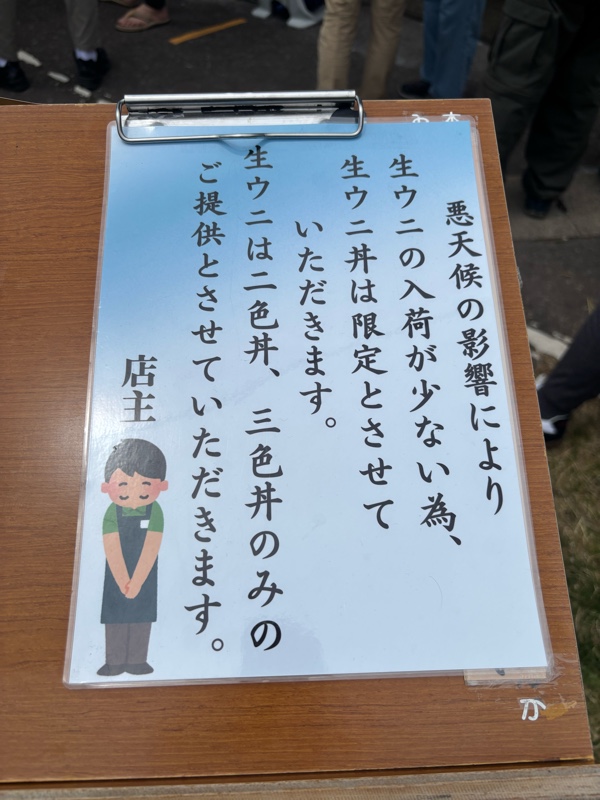 悪天候の影響により
生ウニの入荷が少ない為、
生ウニ丼は限定とさせて
いただきます。
生ウニは二色丼、三色丼のみの
ご提供とさせていただきます。
店主